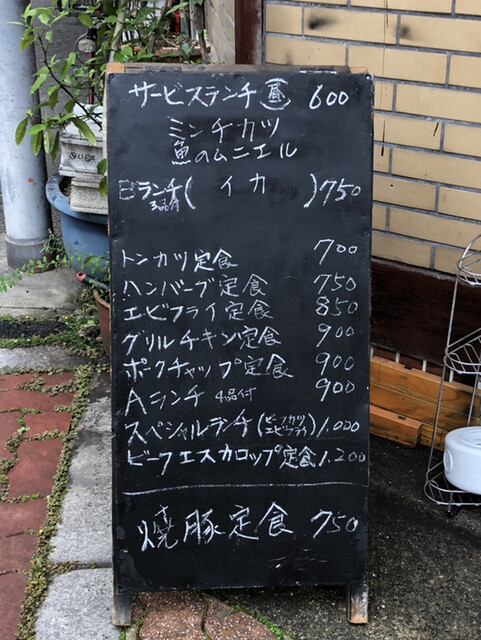 サービスランチ (昼) 600
ミンチカツ
魚のムニエル
Bランチ 3品付 ( イカ ) 750
トンカツ定食 700
ハンバーグ定食 750
エビフライ定食 850
グリルチキン定食 900
ポークチャップ定食 900
Aランチ 4品付 900
スペシャルランチ (ビーフカツ エビフライ) 1,000
ビーフエスカロップ定食 1,200
焼豚定食 750